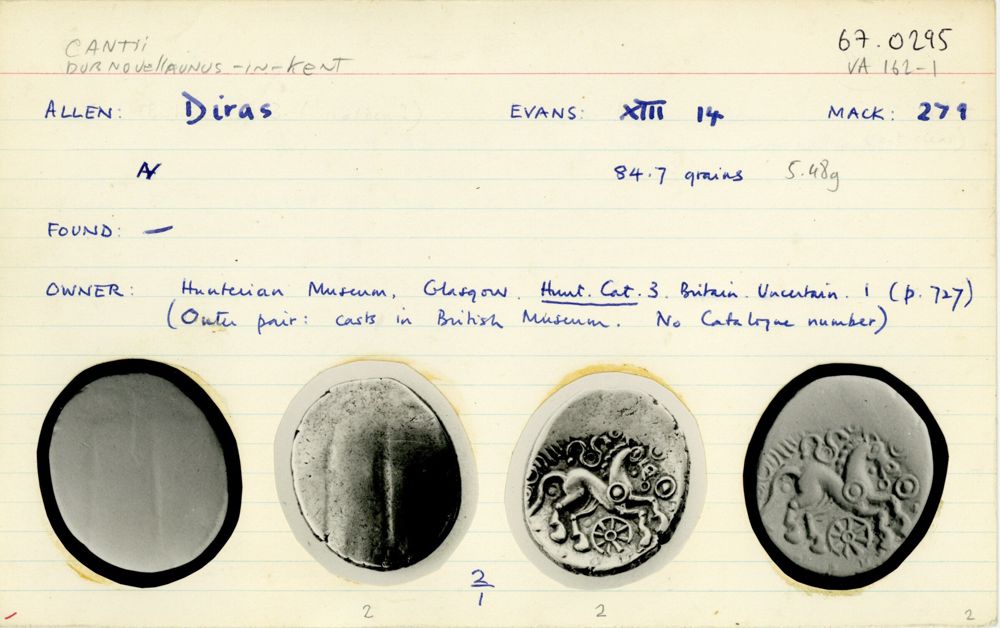 CANTII
DUBNOVELLAUNUS-IN-KENT
67.0295
VA 162-1
ALLEN: Diras EVANS: XIII 14 MACK: 271
N 84.7 grains 5.48g
FOUND: —
OWNER: Hunterian Museum, Glasgow. Hunt. Cat. 3. Britain. Uncertain. 1 (p. 727)
(Outer pair: casts in British Museum. No Catalogue number)
2
1
2 2 2